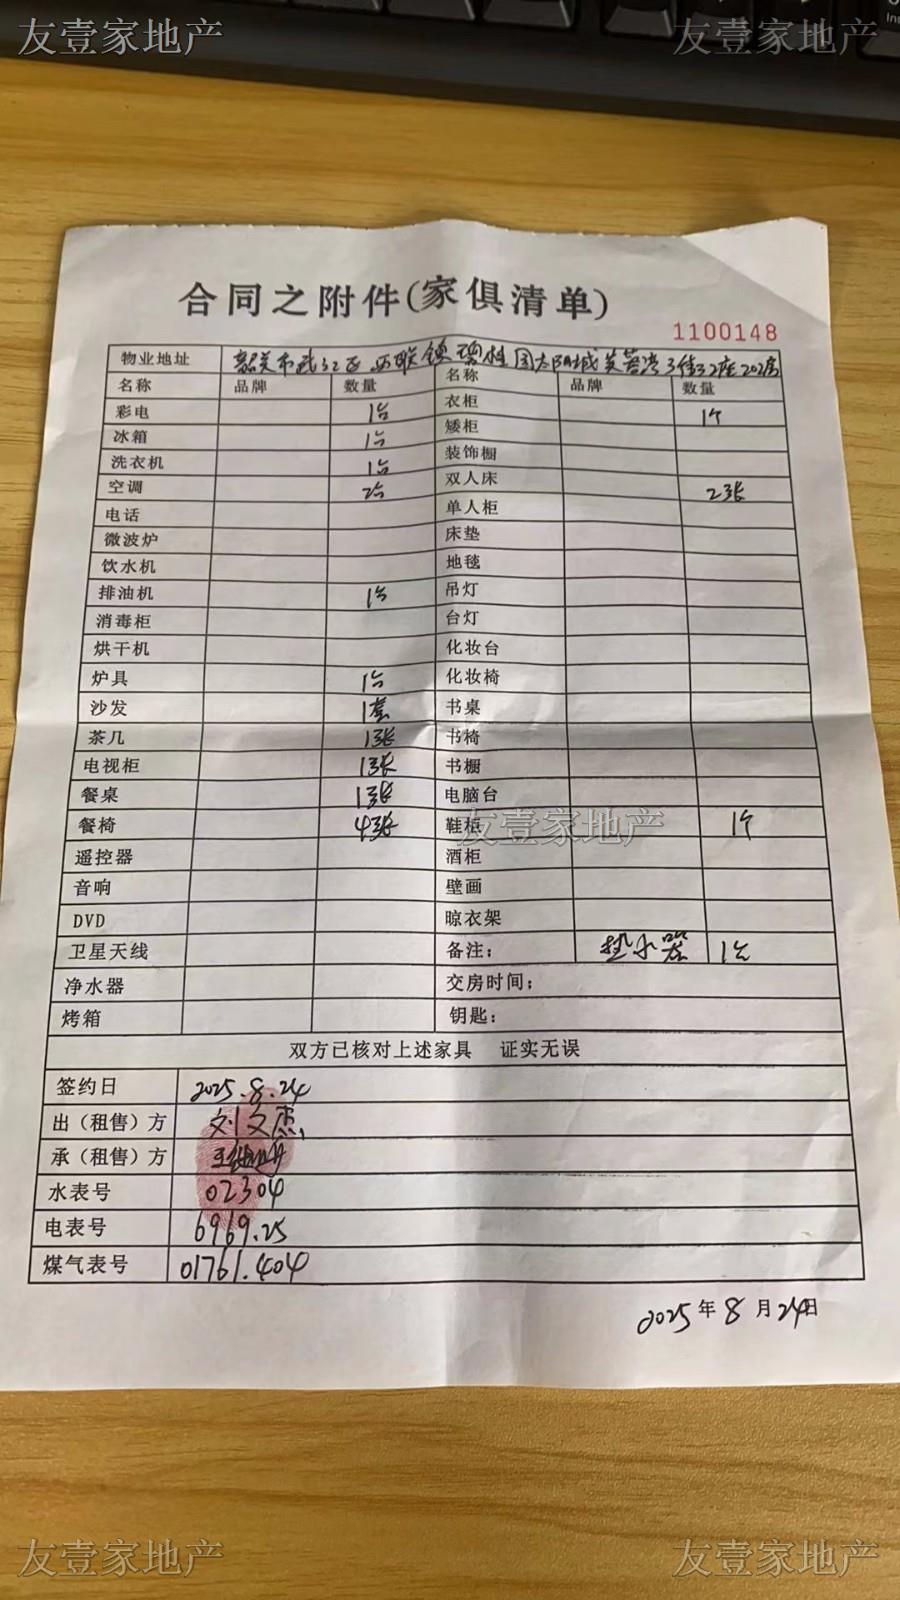 友壹家地产 友壹家地产
合同之附件(家俱清单)
1100148
物业地址 韶关市武江区西联镇碧桂园太阳城芙蓉湾3街32座202房
名称 品牌 数量 名称 品牌 数量
彩电 1台 衣柜 1个
冰箱 1台 矮柜
洗衣机 1台 装饰橱
空调 2台 双人床 2张
电话 单人柜
微波炉 床垫
饮水机 地毯
排油机 1台 吊灯
消毒柜 台灯
烘干机 化妆台
炉具 1台 化妆椅
沙发 1套 书桌
茶几 1张 书椅
电视柜 1张 书橱
餐桌 1张 电脑台
餐椅 4张 鞋柜 1个
友壹家地产
遥控器 酒柜
音响 壁画
DVD 晾衣架
卫星天线 备注: 热水器 1台
净水器 交房时间;
烤箱 钥匙:
双方已核对上述家具 证实无误
签约日 2025.8.24
出（租售）方 刘文杰
承（租售）方
水表号 02304
电表号 6969.25
煤气表号 01761.404
2025年8月24日
友壹家地产 友壹家地产